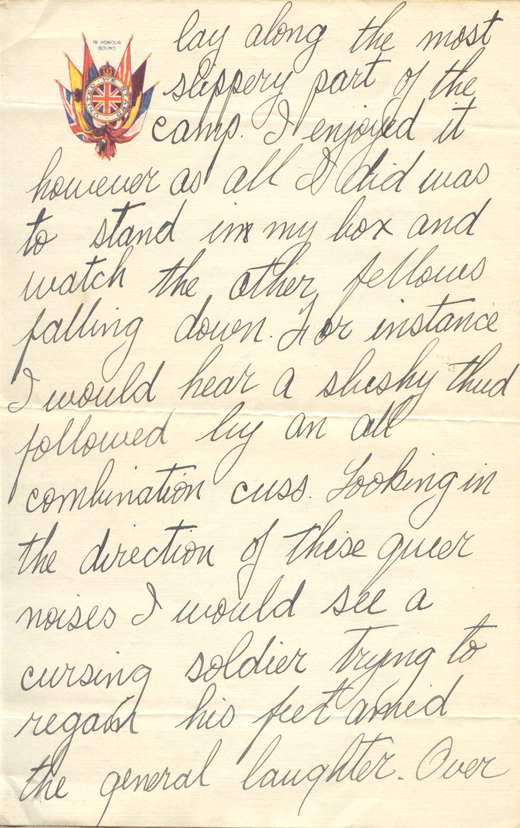 IN HONOUR
BOUND
lay along the most
slippery part of the
camp. I enjoyed it
however as all I did was
to stand in my box and
watch the other fellows
falling down. For instance
I would hear a sloshy thud
followed by an all
combination cuss. Looking in
the direction of these queer
noises I would see a
cursing soldier trying to
regain his feet amid
the general laughter. Over